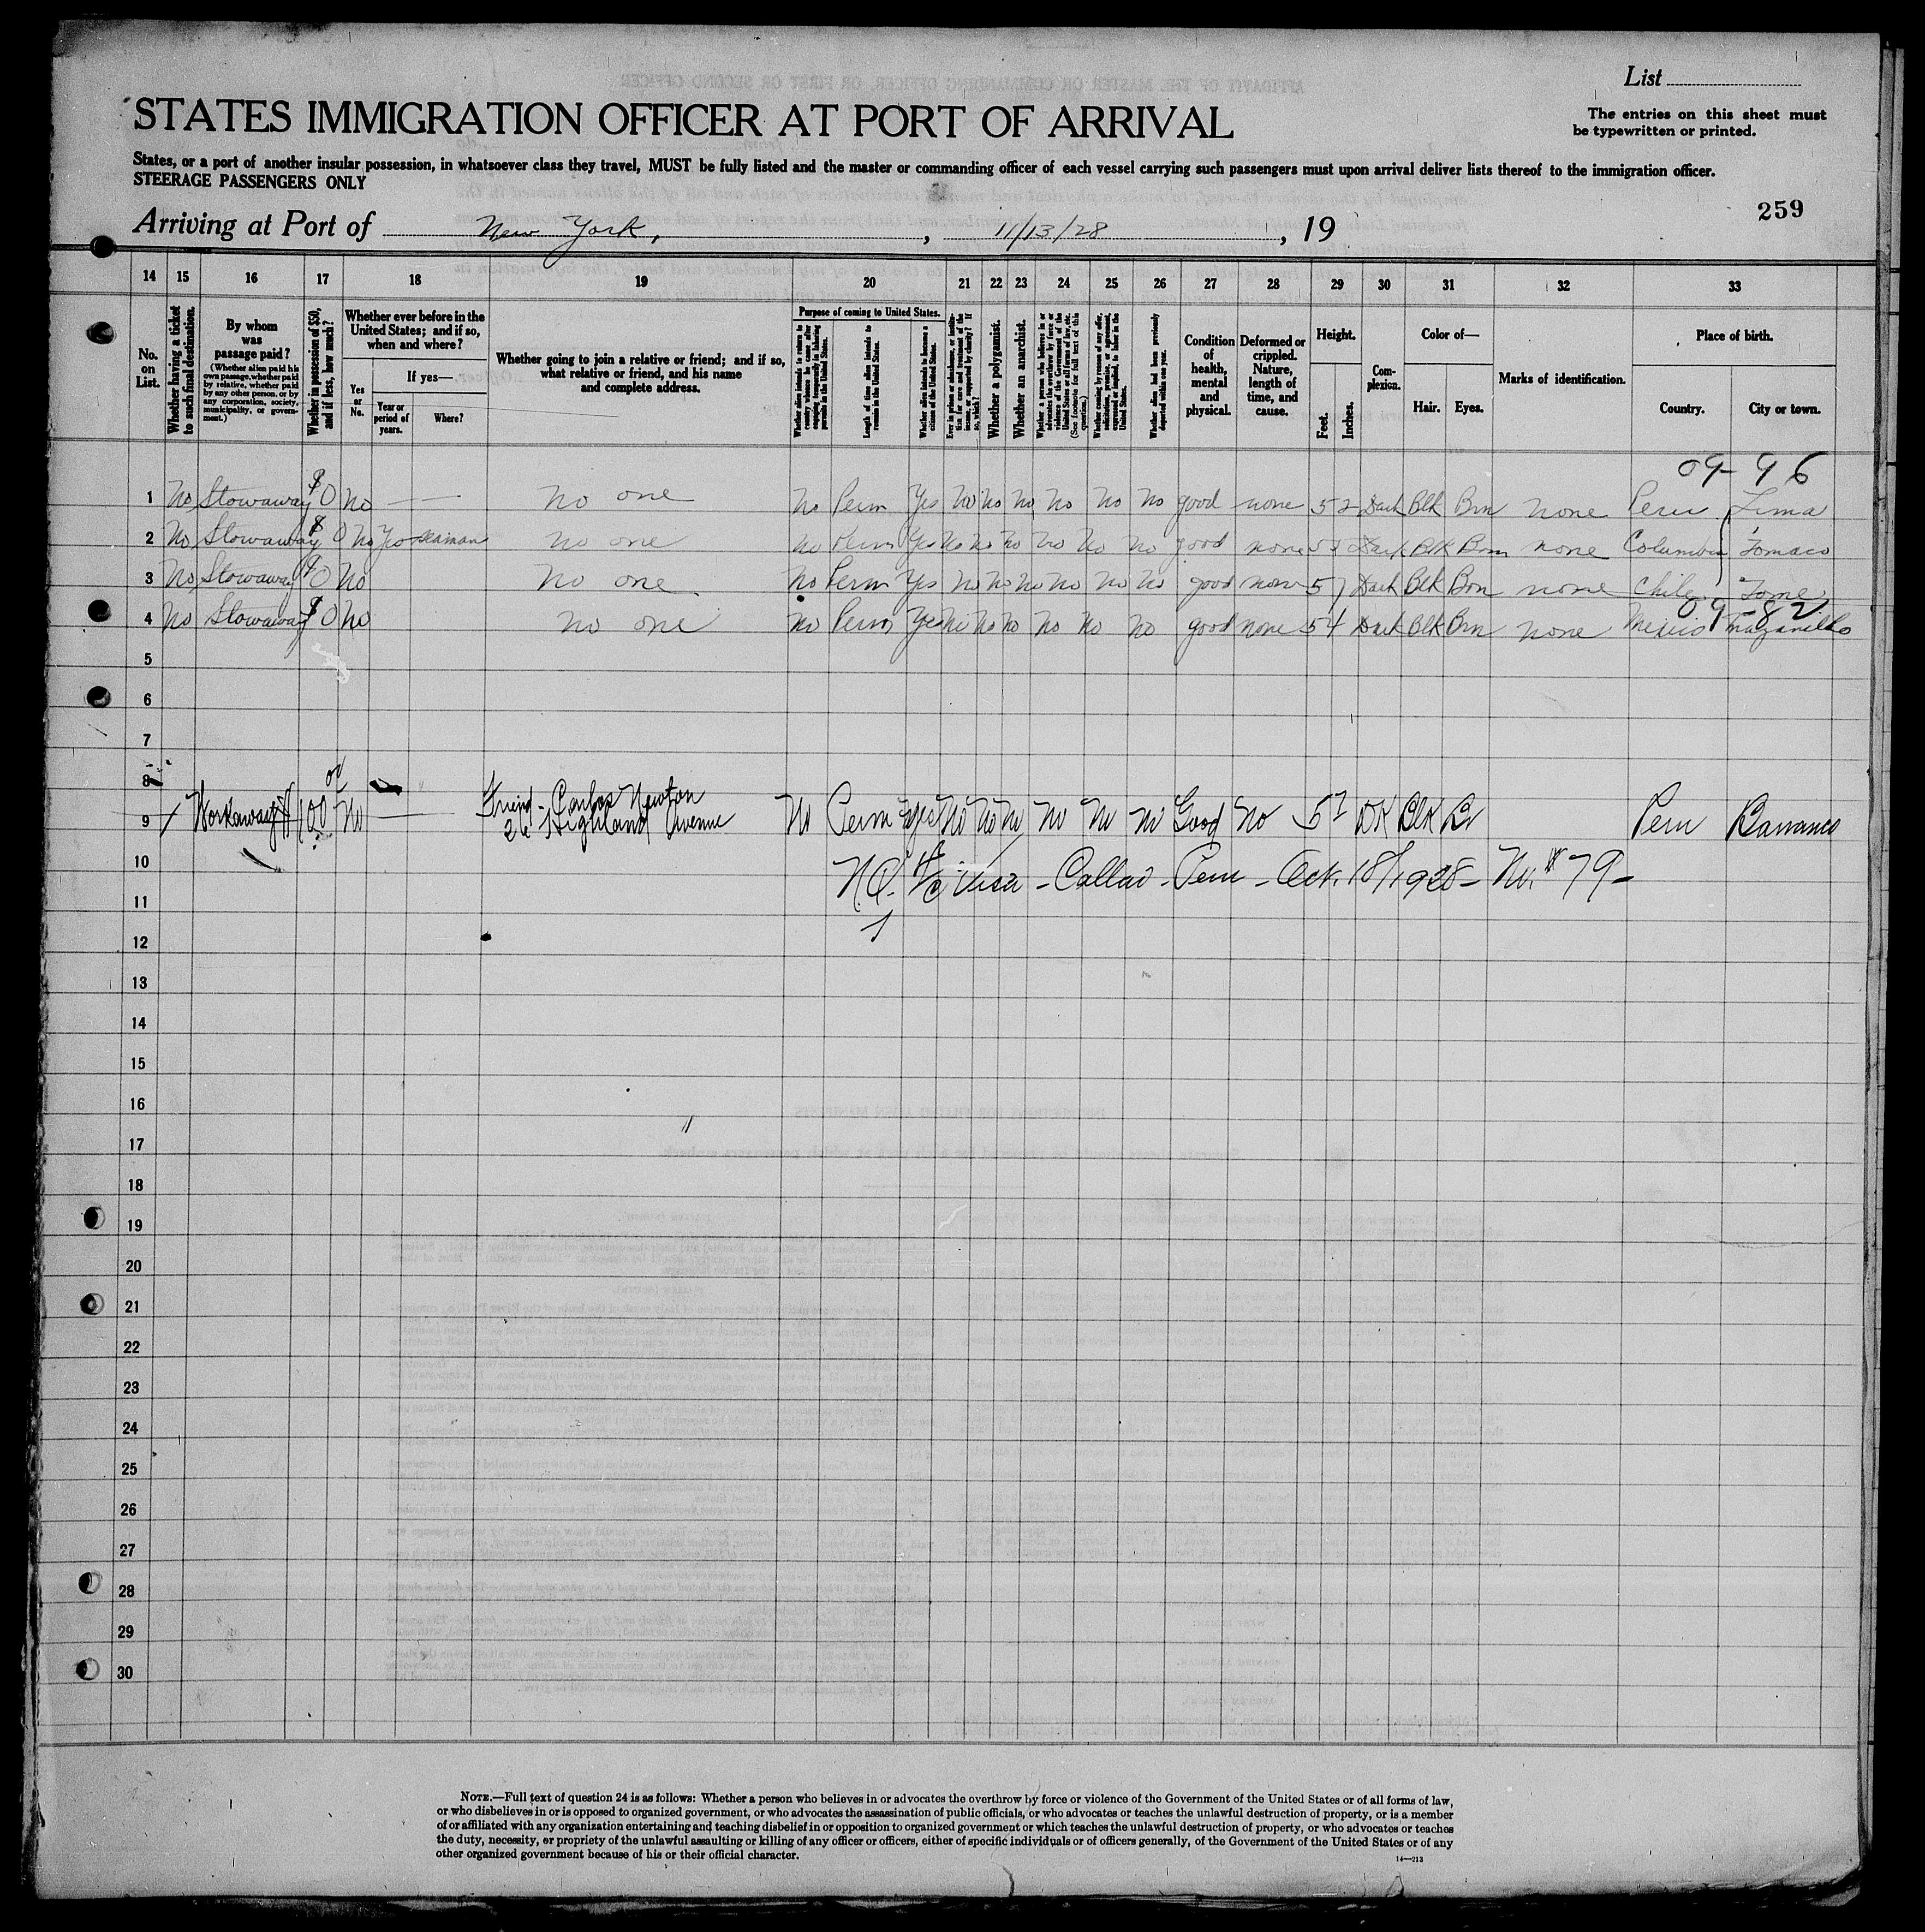 List
STATES IMMIGRATION OFFICER AT PORT OF ARRIVAL
The entries on this sheet must
be typewritten or printed.
States, or a port of another insular possession, in whatsoever class they travel, MUST be fully listed and the master or commanding officer of each vessel carrying such passengers must upon arrival deliver lists thereof to the immigration officer.
STEERAGE PASSENGERS ONLY
259
Arriving at Port of New York, , 11/13/28 , 19
14 15 16 17 18 19 20 21 22 23 24 25 26 27 28 29 30 31 32 33
No. on List.
Whether having a ticket to such final destination.
By whom was passage paid?
(Whether alien paid his own passage, whether paid by relative, whether paid by any other person, or by any corporation, society, municipality, or government.)
Whether in possession of $50, and if less, how much?
Whether ever before in the United States; and if so, when and where?
Yes or No.
If yes—
Year or period of years.
Where?
Whether going to join a relative or friend; and if so, what relative or friend, and his name and complete address.
Purpose of coming to United States.
Whether alien intends to return to country whence he came after engaging temporarily in laboring pursuits in the United States.
Length of time alien intends to remain in the United States.
Whether alien intends to become a citizen of the United States.
Ever in prison or almshouse, or institution for care and treatment of the insane, or supported by charity? If so, which?
Whether a polygamist.
Whether an anarchist.
Whether a person who believes in or advocates the overthrow by force or violence of the Government of the United States or all forms of law, etc. (See footnote for full text of this question.)
Whether coming by reason of any offer, solicitation, promise, or agreement, expressed or implied, to labor in the United States.
Whether alien had been previously deported within one year.
Condition of health, mental and physical.
Deformed or crippled. Nature, length of time, and cause.
Height.
Feet. Inches.
Complexion.
Color of—
Hair. Eyes.
Marks of identification.
Place of birth.
Country. City or town.
09-96
1 No Stowaway $0 No — no one No Perm Yes No No No No No No good none 5 2 Dark Blk Brn none Peru Lima
2 No Stowaway $0 No Yes seaman no one no Perm Yes No No No No No No good none 5 Dark Blk Brn none Columbia Tomaco
3 No Stowaway $0 No no one No Perm Yes No No No No No No good none 5 7 Dark Blk Brn none Chile Tome
09-82
4 No Stowaway $0 No no one No Perm Yes No No No No No No good none 5 4 Dark Blk Brn none Mexico Mazanillo
5
6
7
8
Friend - Carlos Newton
9 Workaway $100 No — 26 Highland Avenue No Perm Yes No No No No No No Good No 5 7 DK Blk Br Peru Barranco
10 N.Q. Visa - Callao - Peru - Oct. 18/1928 - No. # 79 -
11
12
13
14
15
16
17
18
19
20
21
22
23
24
25
26
27
28
29
30
NOTE.—Full text of question 24 is as follows: Whether a person who believes in or advocates the overthrow by force or violence of the Government of the United States or of all forms of law,
or who disbelieves in or is opposed to organized government, or who advocates the assassination of public officials, or who advocates or teaches the unlawful destruction of property, or is a member
of or affiliated with any organization entertaining and teaching disbelief in or opposition to organized government or which teaches the unlawful destruction of property, or who advocates or teaches
the duty, necessity, or propriety of the unlawful assaulting or killing of any officer or officers, either of specific individuals or of officers generally, of the Government of the United States or of any
other organized government because of his or their official character.
14—213